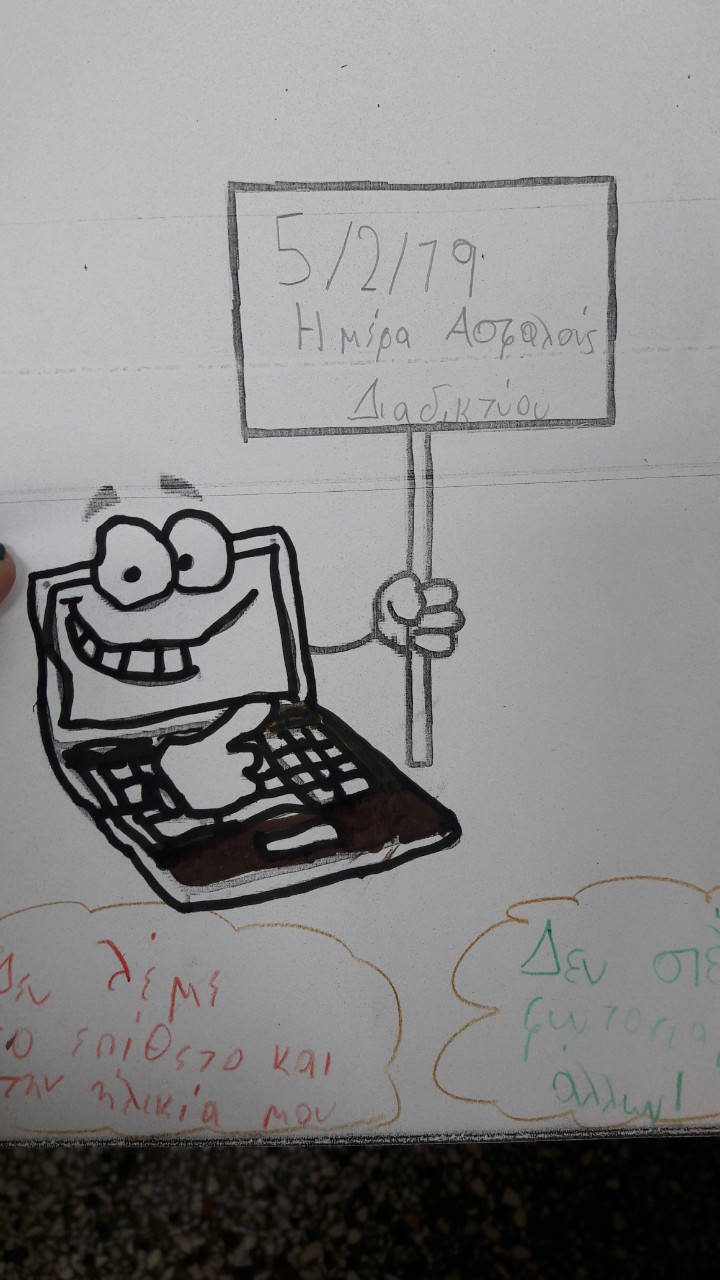 5/2/19
Ημέρα Ασφαλούς
Διαδικτύου
Δεν λέμε
το επίθετο και
την ηλικία μου
Δεν
φωτογρα
άλλων!